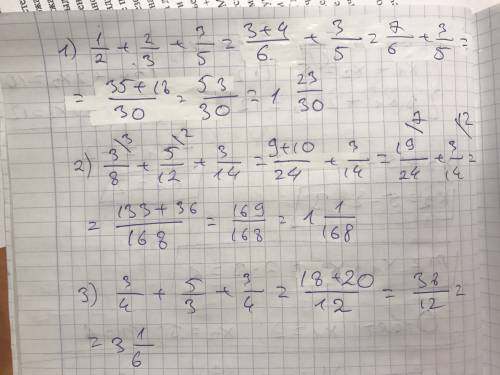 1) 1/2 + 2/3 + 3/5 = 3+4/6 + 3/5 = 7/6 + 3/5 =
= 35+18/30 = 53/30 = 1 23/30
2) 3/8 \3 + 5/12 \2 + 3/14 = 9+10/24 + 3/14 = 19/24 \7 + 3/14 \12 =
= 133+36/168 = 169/168 = 1 1/168
3) 3/4 + 5/3 + 3/4 = 18+20/12 = 38/12 =
= 3 1/6